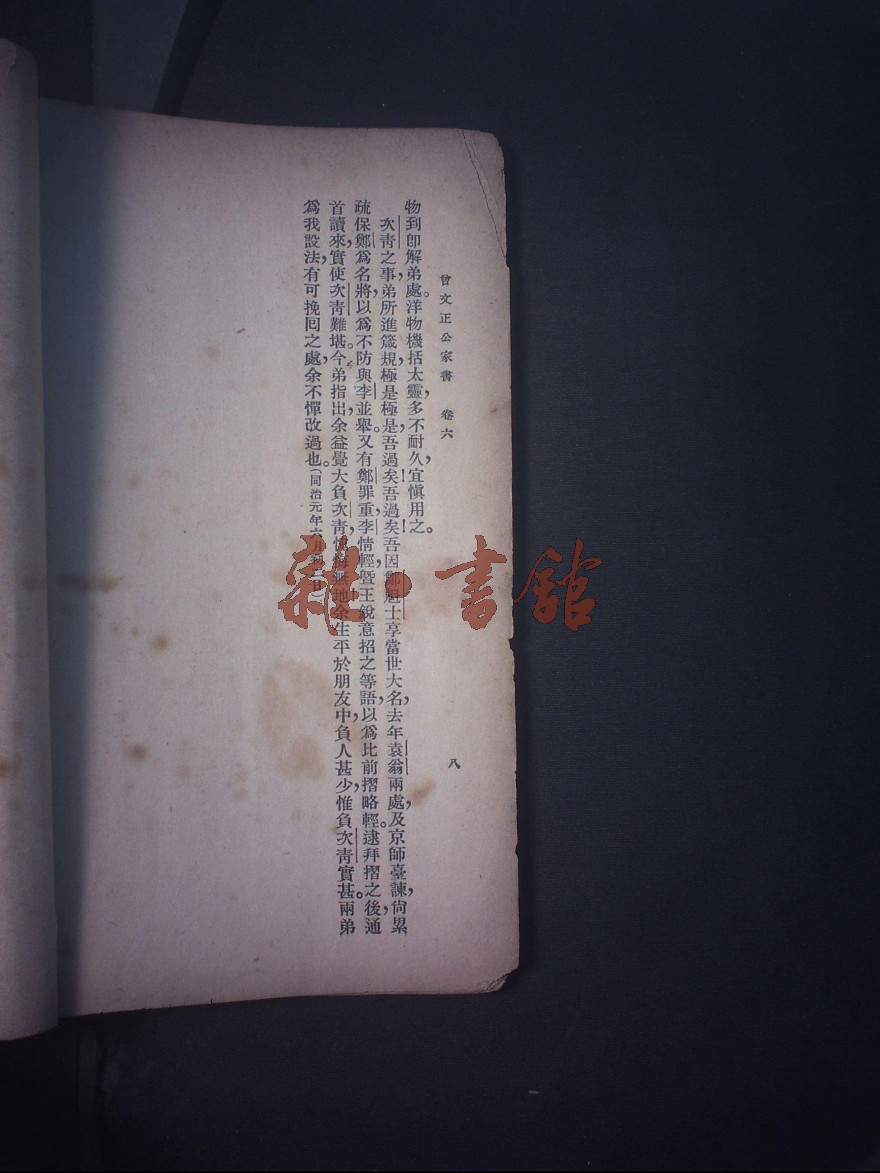 曾文正公家書　卷六　八
物到卽解弟處。洋物機括太靈，多不耐久，宜愼用之。
次靑之事，弟所進箴規，極是極是，吾過矣！吾過矣！吾因鄭魁士享當世大名，去年袁翁兩處，及京師臺諫，尙累
疏保鄭爲名將，以爲不防與李並舉。又有鄭罪重，李情輕，曁王銳意招之等語，以爲比前摺略輕。逮拜摺之後，通
首讀來，實使次靑難堪。今弟指出，余益覺大負次靑，愧悔無地。余生平於朋友中，負人甚少，惟負次靑實甚。兩弟
爲我設法，有可挽囘之處，余不憚改過也。（同治元年六月初二日）
雜·書館